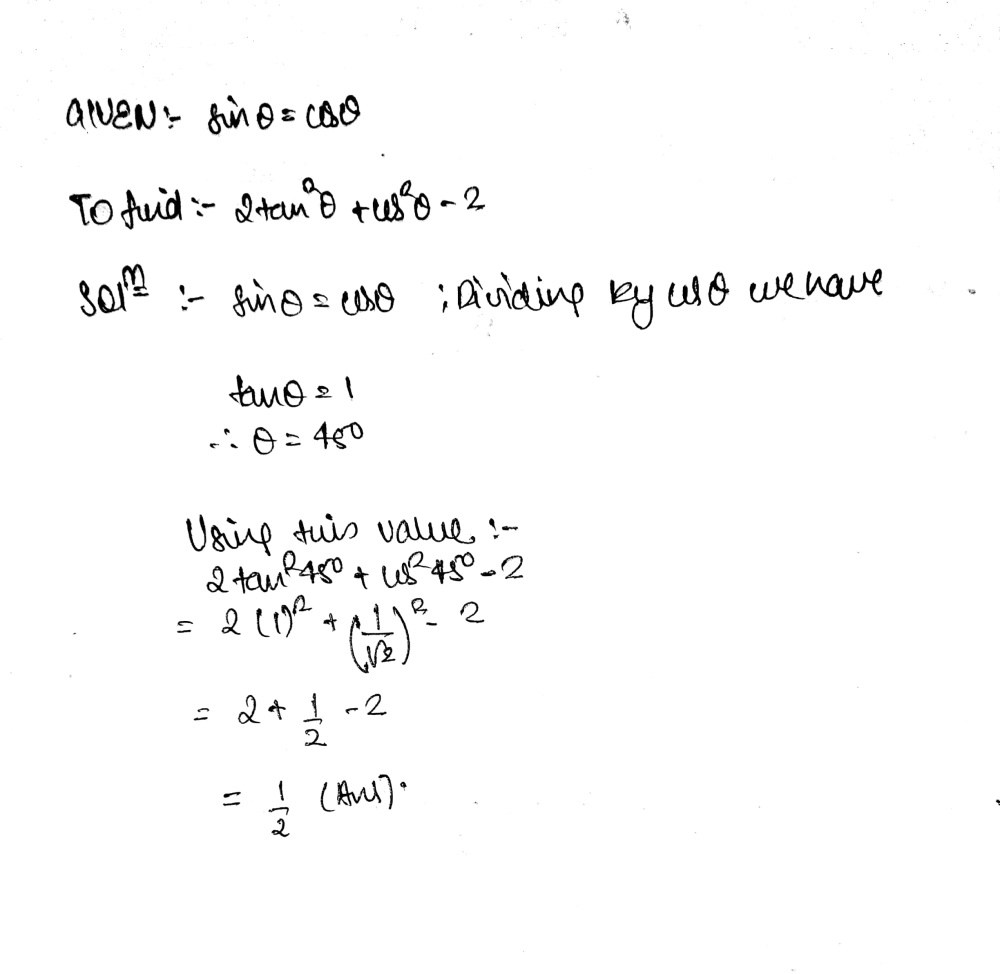 GIVEN:- sinθ = cosθ
To find :- 2tan²θ + cos²θ - 2
Solⁿ :- sinθ = cosθ ; Dividing by cosθ we have
tanθ = 1
∴ θ = 45°
Using this value :-
2 tan²45° + cos²45° - 2
= 2(1)² + (1/√2)² - 2
= 2 + 1/2 - 2
= 1/2 (Ans).